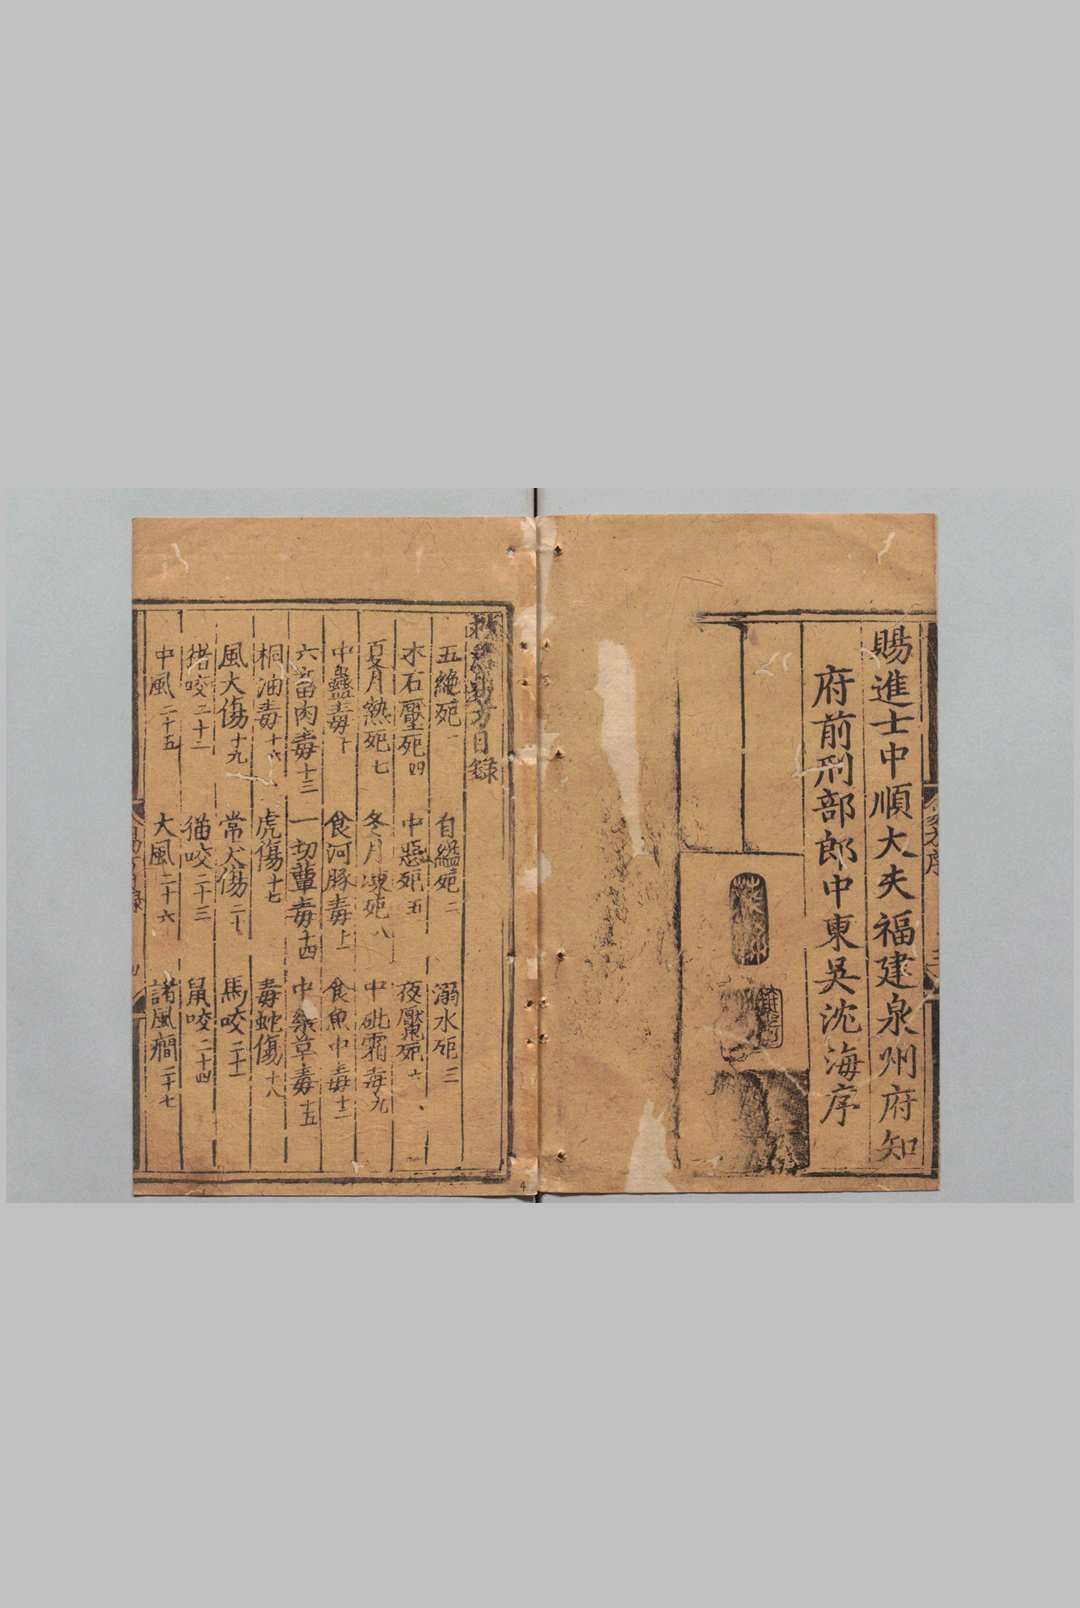 賜進士中順大夫福建泉州府知
府前刑部郎中東吳沈海序
方目錄
五絶死一 自縊死二 溺水死三
木石壓死四 中惡死五 夜魘死六
夏月熱死七 冬月凍死八 中砒霜毒九
中蠱毒十 食河豚毒十一 食魚中毒十二
六畜肉毒十三 一切蕈毒十四 中藥草毒十五
桐油毒十六 虎傷十七 毒蛇傷十八
風犬傷十九 常犬傷二十 馬咬二十一
猪咬二十二 猫咬二十三 鼠咬二十四
中風二十五 大風二十六 諸風癇二十七
4